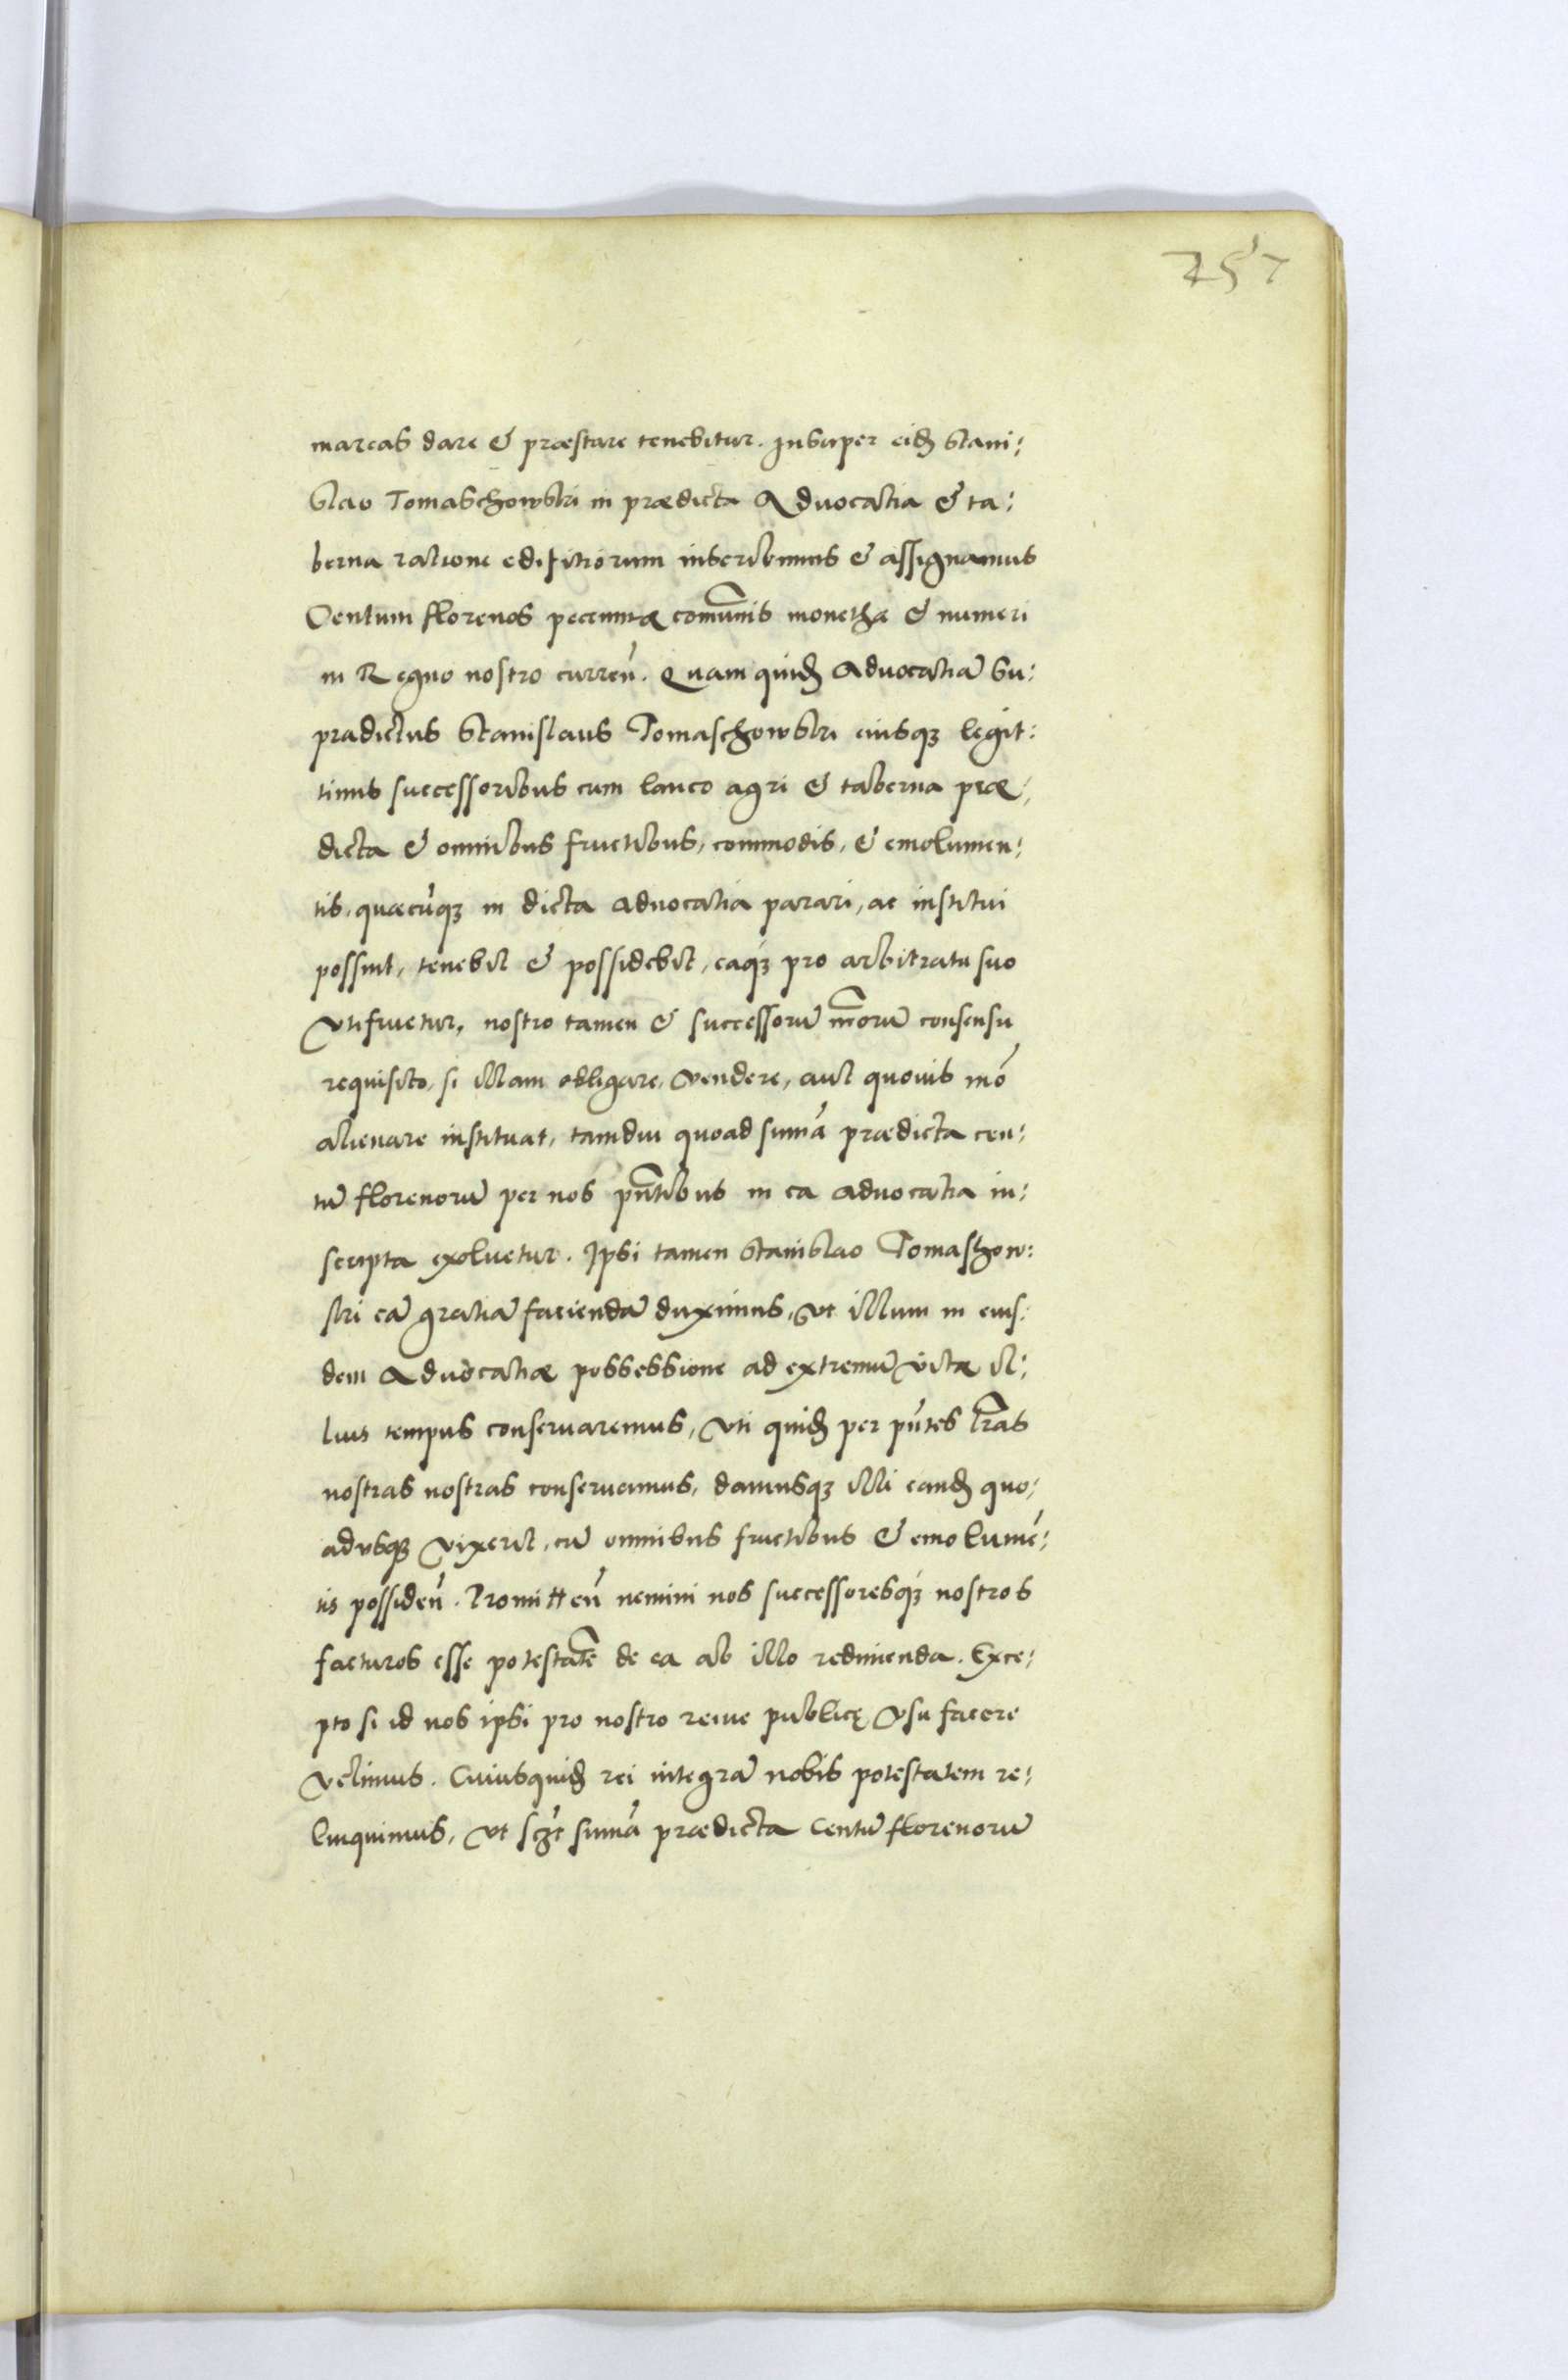 257
marcas dare & præstare tenebitur. Insuper eid[em] Stani:
slao Tomaschowski in prædicta Advocatia & ta:
berna ratione edifitiorum inscribimus & assignamus
Centum florenos pecuniæ com̃unis monethæ & numeri
in Regno nostro curreñ. Quam quid[em] Advocatiã su:
pradictus Stanislaus Tomaschowski eiusqȝ legit:
timis successoribus cum laneo agri & taberna præ:
dicta & omnibus fructibus, commodis, & emolumen:
tis, quæcũqȝ in dicta advocatia parari, ac institui
possint, tenebit & possidebit, eaqȝ pro arbitratu suo
vtifruetur, nostro tamen & successorũ nr̃orũ consensu
requisito, si illam obligare, vendere, aut quovis mõ
alienare instituat, tamdiu quoad sum̃a prædicta cen:
tũ florenorũ per nos pñtibus in ea advocatia in:
scripta exolvetur. Ipsi tamen Stanislao Tomashow:
ski eã gratiã faciendã duximus, vt illum in eius:
dem Advocatiæ possessione ad extremũ vitæ il:
lius tempus conservaremus, vti quid[em] per pñtes lr̃as
nostras nostras conservamus, damusqȝ illi eand[em] quo:
adusqȝ vixerit, cũ omnibus fructibus & emolumẽ:
tis possideñ. Promitteñ nemini nos successoresqȝ nostros
facturos esse potestatẽ de ea ab illo redimenda. Exce:
pto si id nos ipsi pro nostro reiue publicę vsu facere
velimus. Cuiusquid[em] rei integrã nobis potestatem re:
linquimus, vt sc̃t sum̃a prædicta Centũ florenorũ